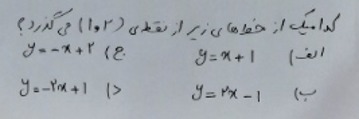 کدامیک از خط‌های زیر از نقطه‌ی (۲ و ۱) می‌گذرد؟
الف) y=x+1 ج) y=-x+2
ب) y=2x-1 د) y=-2x+1